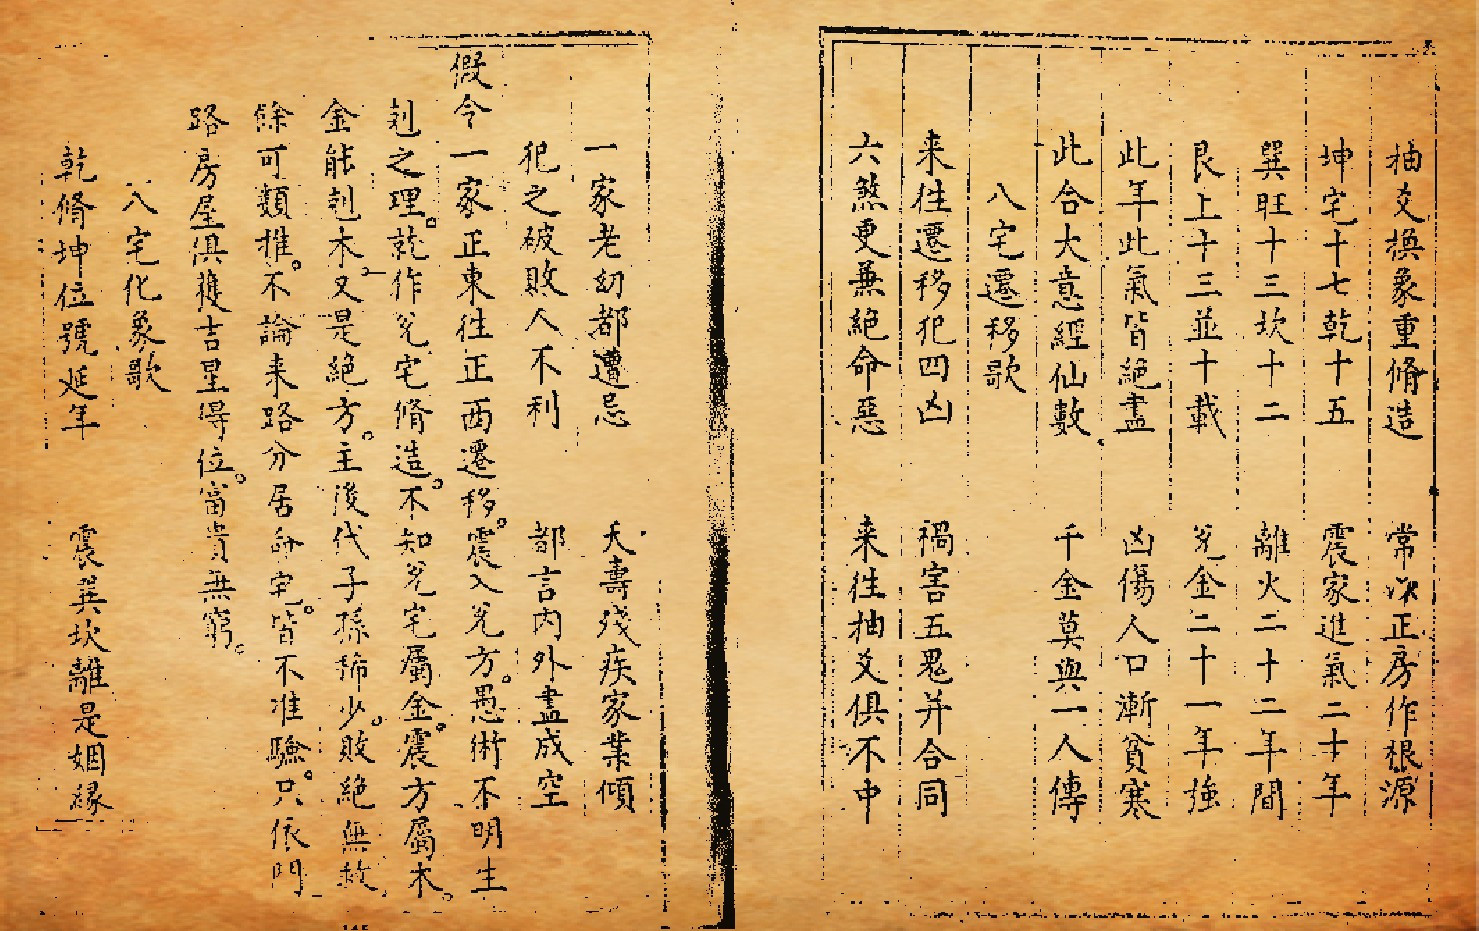 抽爻換象重脩造　常以正房作根源
坤宅十七乾十五　震家進氣二十年
巽旺十三坎十二　離火二十二年間
艮上十三並十載　兌金二十一年強
此年此氣皆絕盡　凶傷人口漸貧寒
此合大意經仙數　千金莫與一人傳
八宅遷移歌
来往遷移犯四凶　禍害五鬼并合同
六煞更兼絕命惡　来往抽爻俱不中
一家老幼都遭忌　夭壽殘疾家業傾
犯之破敗人不利　都言內外盡成空
假令一家正東往正西遷移。震入兌方。愚術不明生
剋之理。就作兌宅脩造。不知兌宅屬金。震方屬木。
金能剋木又是絕方。主後代子孫稀少。敗絕無救。
餘可類推。不論来路分居命宅。皆不准驗。只依門
路房屋俱穫吉星得位。富貴無窮。
八宅化象歌
乾脩坤位號延年　震巽坎離是姻緣